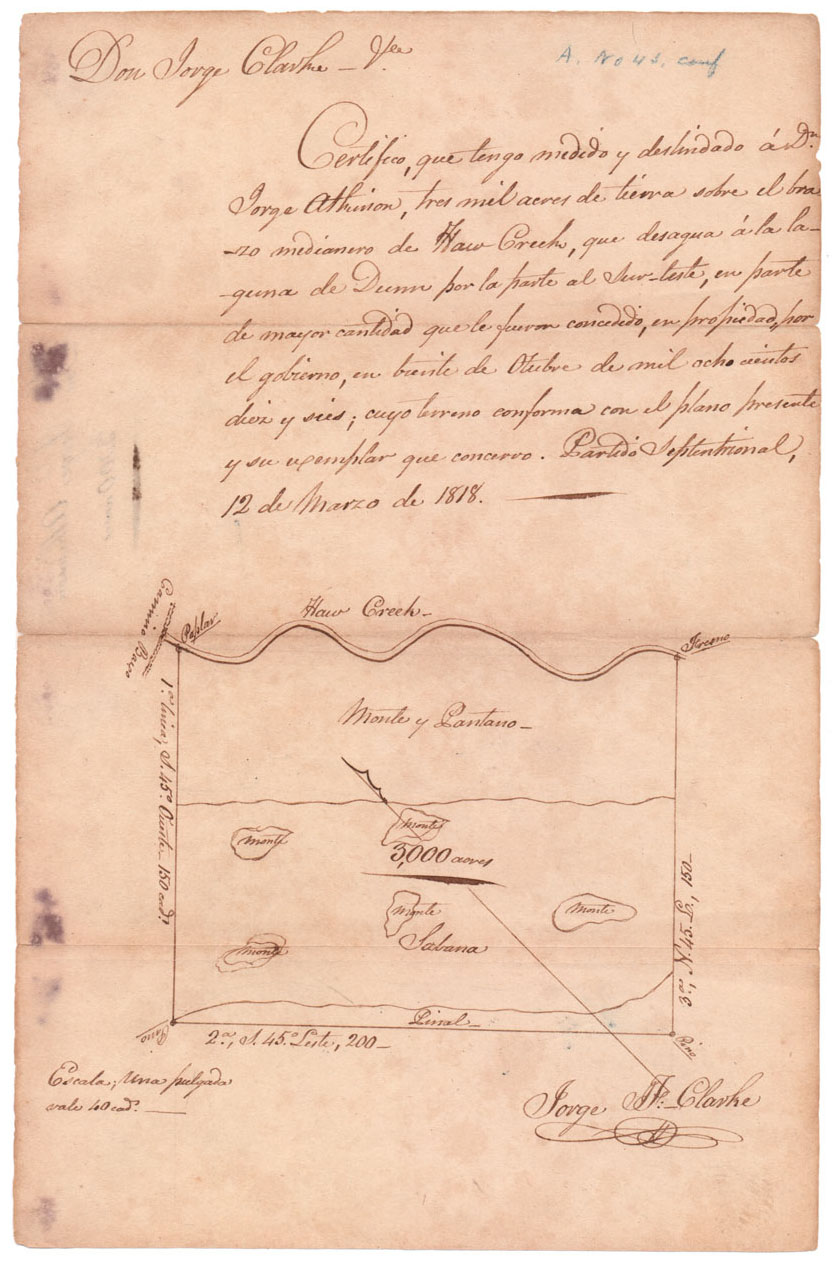 Don Jorge Clarke
A. No 45. conf
Certifico, que tengo medido y deslindado á Dn.
Jorge Atkinson, tres mil acres de tierra sobre el bra
-zo medianero de Haw Creek, que desagua á la la-
-guna de Dunn por la parte al Sur-leste, en parte
de mayor cantidad que le fueron concedido, en propiedad, por
el gobierno, en viente de Otubre de mil ocho cientos
diez y sies; cuyo terreno conforma con el plano presente
y su exemplar que concervo. Partido Septentrional,
12 de Marzo de 1818.
Haw Creek
Camino Baxo
Poplar
Fresno
Monte y Pantano
1a. linea; S. 45.o Oueste 150 cads.
Monte
Monte
3,000 acres
Monte
Monte
Sabana
Monte
3a., N. 45. L., 150
Pinal
Pino
2a., S. 45.o Leste, 200
Pino
Escala; Una pulgada
vale 40 cads.
Jorge J. F. Clarke